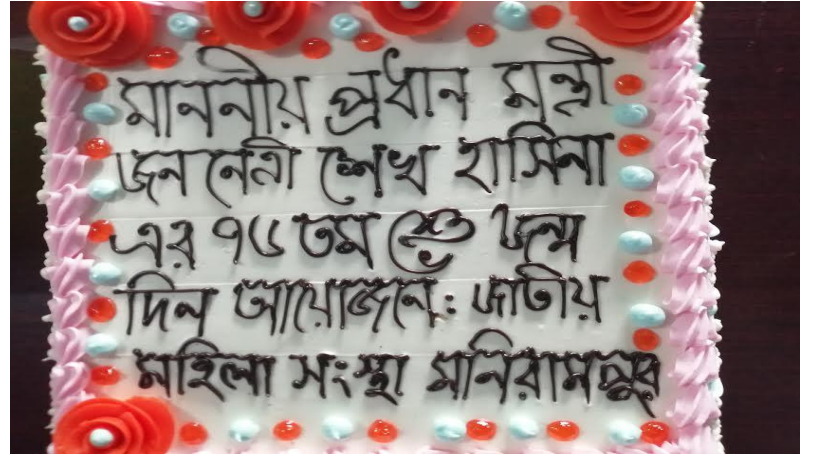 মাননীয় প্রধান মন্ত্রী
জন নেত্রী শেখ হাসিনা
এর ৭৫ তম শুভ জন্ম
দিন আয়োজনে: জাতীয়
মহিলা সংস্থা মনিরামপুর